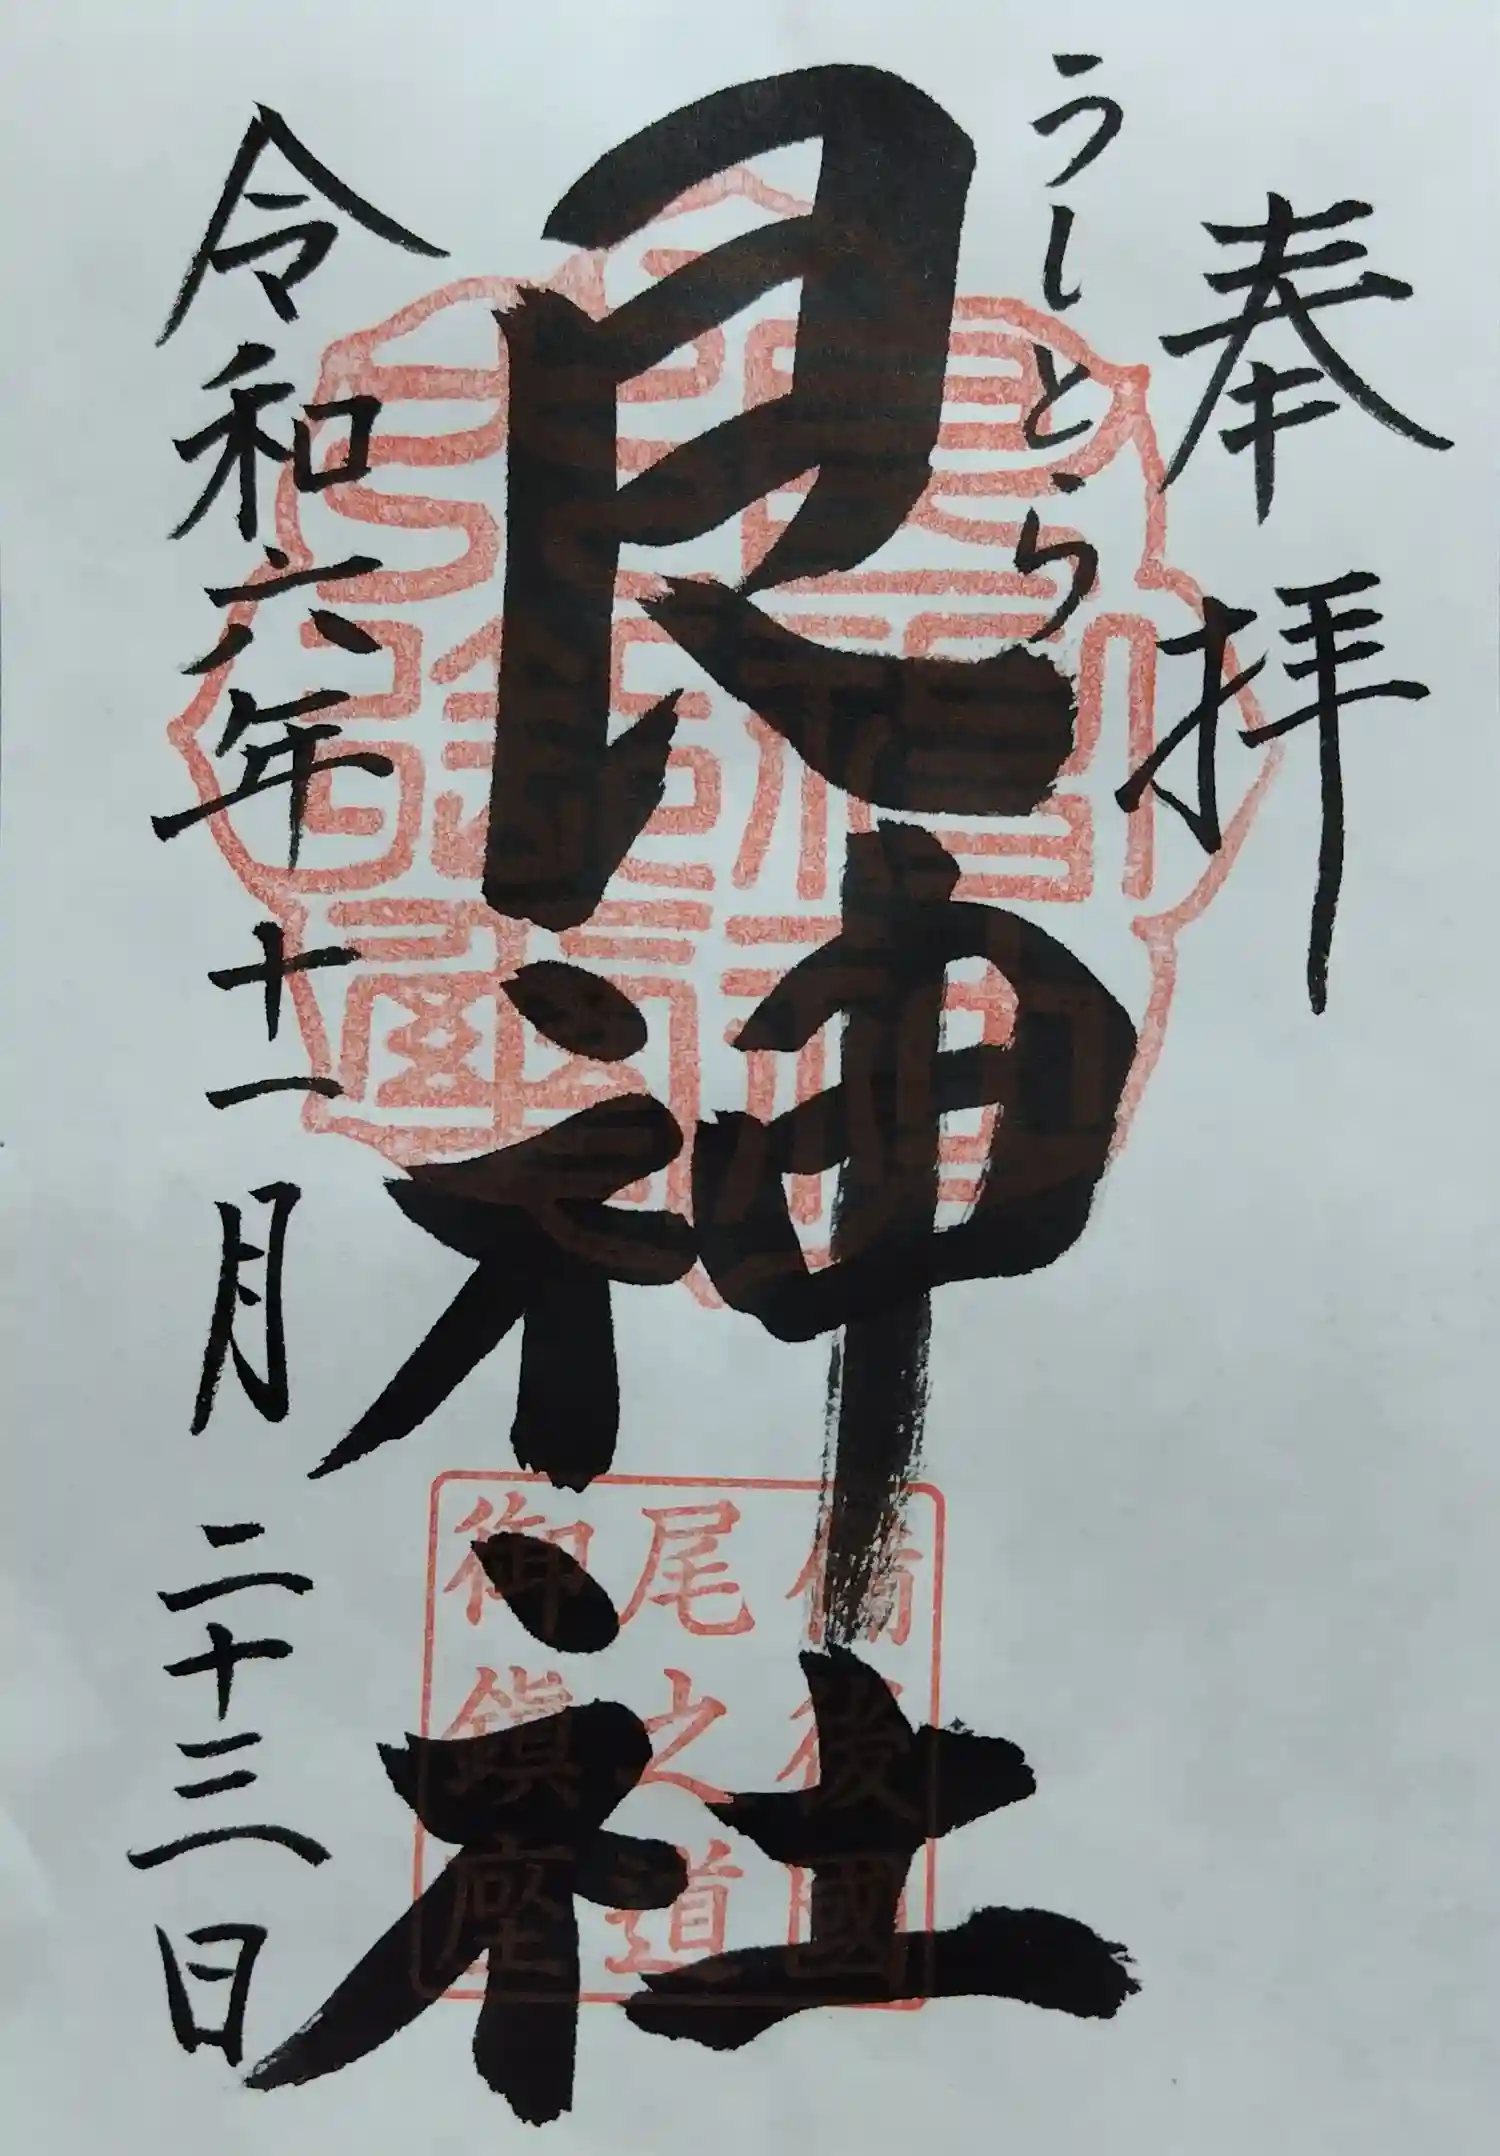 奉拝
うしとら
艮神社
令和六年十一月二十三日
備後國
尾之道
御鎮座